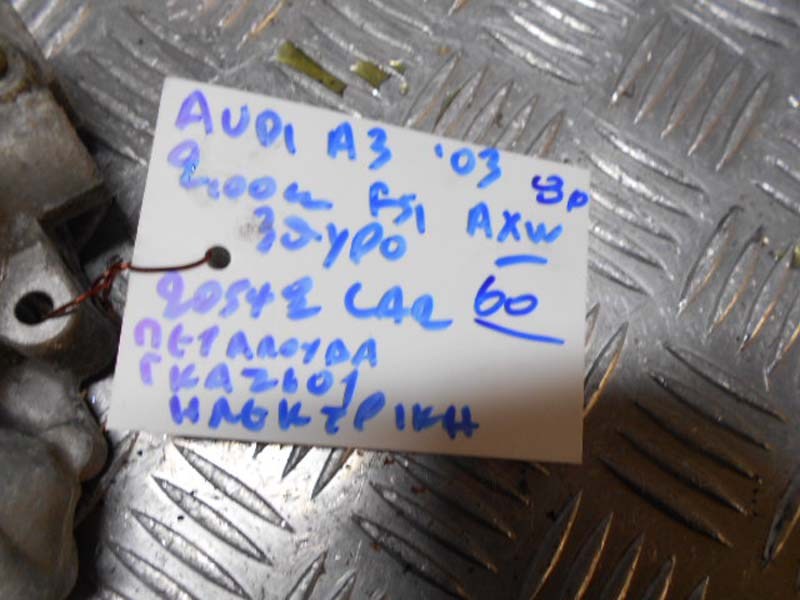 AUDI A3 '03 8P
2.00cc FSI AXW
3θυρο
20542 CAR 60
ΠΕΤΑΛΟΥΔΑ
ΓΚΑΖΙΟΥ
ΗΛΕΚΤΡΙΚΗ